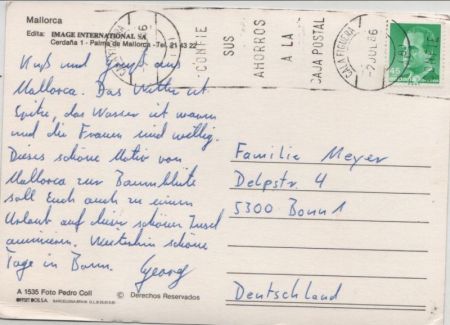 Mallorca
Edita: IMAGE INTERNATIONAL SA
Cerdaña 1 - Palma de Mallorca - Tel. 21 43 22
CONFIE
SUS
AHORROS
A LA
CAJA POSTAL
CALA FIGUERA
-2 JUL 86
Kuß und Gruß aus
Mallorca. Das Wetter ist
Spitze, das Wasser ist warm
und die Frauen sind willig.
Dieses schöne Motiv von
Mallorca zur Baumblüte
soll Euch auch zu einem
Urlaub auf dieser schönen Insel
animieren. Weiterhin schöne
Tage in Bonn. Georg
Familie Meyer
Delpstr. 4
5300 Bonn 1
Deutschland
A 1535 Foto Pedro Coll
© Derechos Reservados